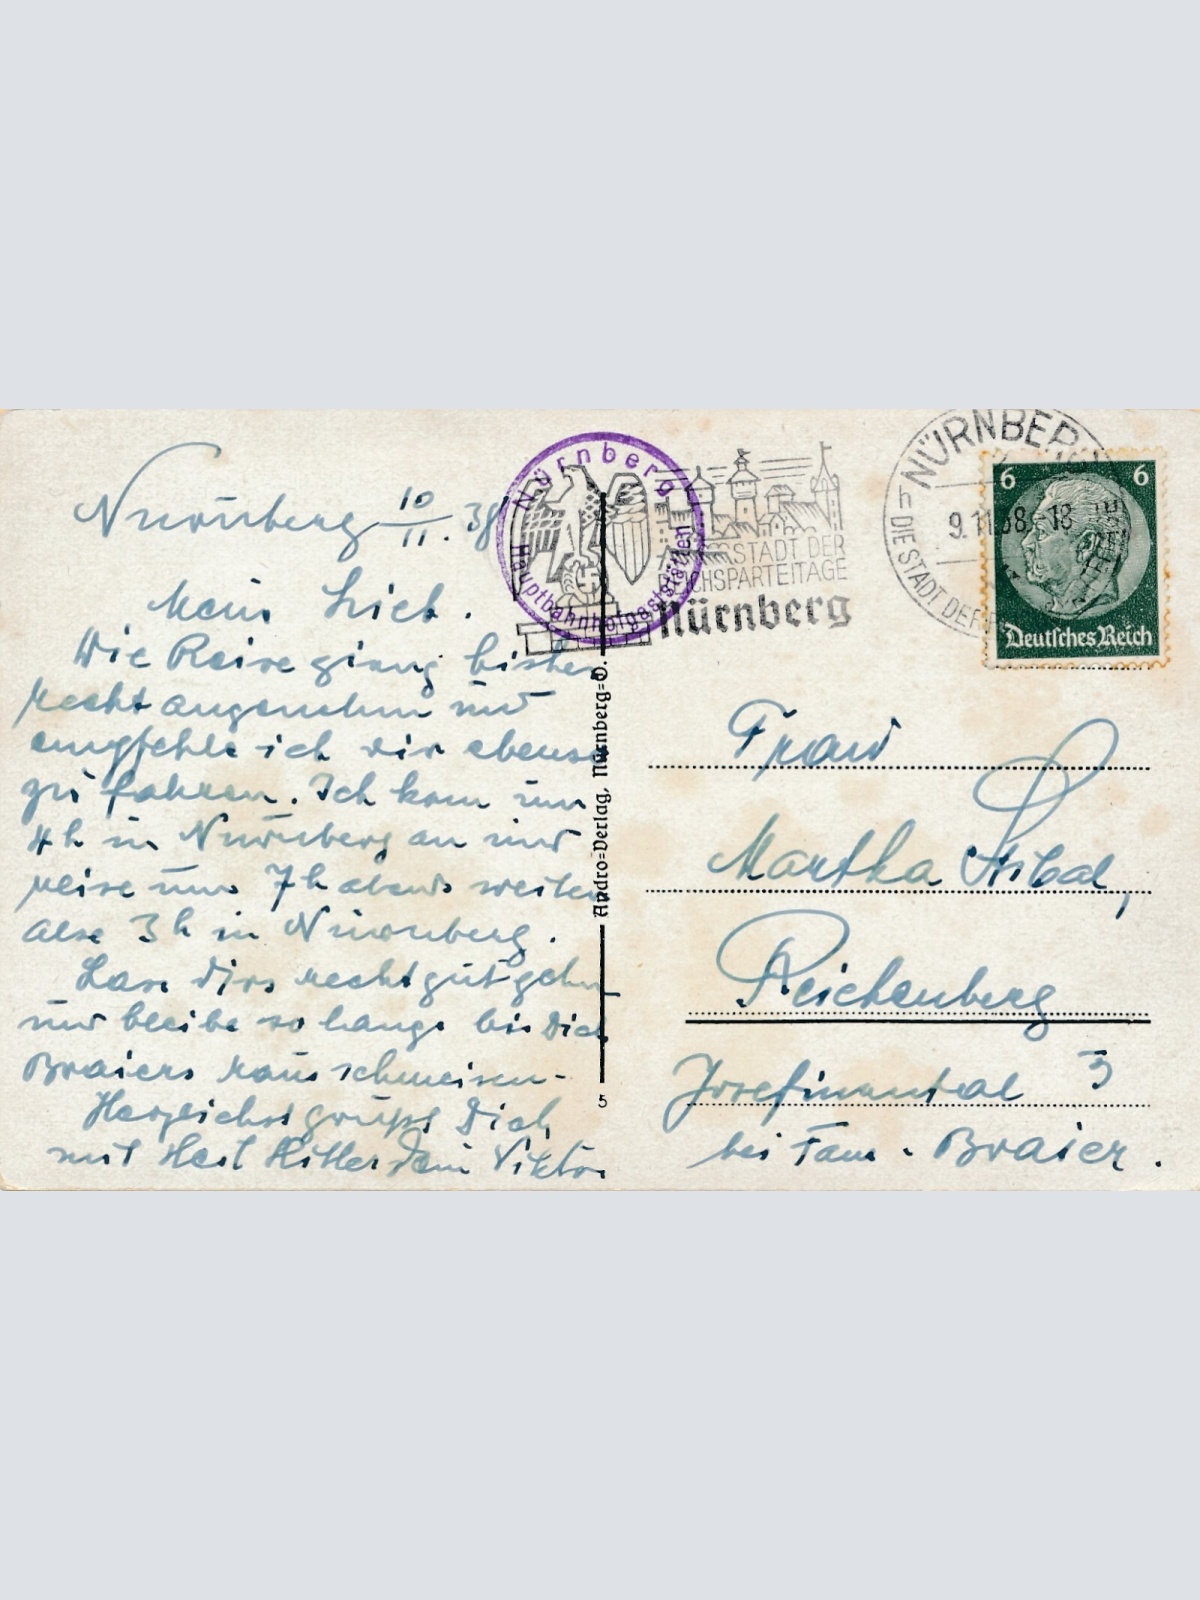 Nürnberg 10/11. 38
Mein Lieb.
Die Reise ging bisher
recht angenehm und
empfehle ich dir ebenso
zu fahren. Ich kam um
4 h in Nürnberg an und
reise um 7 h abends weiter
also 3 h in Nürnberg.
Lass dirs recht gut gehn
und bleibe so lange bis Dich
Braiers rausschmeisen-
Herzlichst grüßt Dich
mit Heil Hitler Dein Viktor
Nürnberg
Hauptbahnhofgaststätten
STADT DER
REICHSPARTEITAGE
Nürnberg
NÜRNBERG
9.11.38. 18
h
DIE STADT DER
6 6
Deutsches Reich
Andro=Verlag, Nürnberg=O.
5
Frau
Martha
Reichenberg
Josefinental 3
bei Fam. Braier.